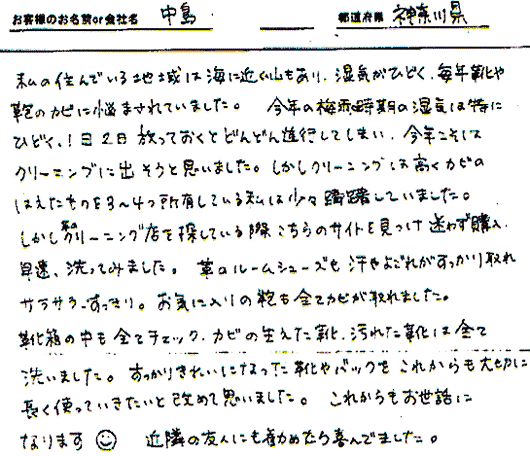 お客様のお名前or会社名 中島 都道府県 神奈川県
私の住んでいる地域は海に近く山もあり、湿気がひどく、毎年靴や
鞄のカビに悩まされていました。 今年の梅雨時期の湿気は特に
ひどく、1日2日放っておくとどんどん進行してしまい、今年こそは
クリーニングに出そうと思いました。しかしクリーニングは高くカビの
はえたものを3〜4つ所有している私は少々躊躇していました。
しかし革のクリーニング店を探している際こちらのサイトを見つけ迷わず購入。
早速、洗ってみました。革のルームシューズも汗やよごれがすっかり取れ
サラサラ、すっきり。お気に入りの鞄も全てカビが取れました。
靴箱の中も全てチェック、カビの生えた靴、汚れた靴は全て
洗いました。すっかりきれいになった靴やバックをこれからも大切に
長く使っていきたいと改めて思いました。これからもお世話に
なります☺ 近隣の友人にも勧めたら喜んでました。